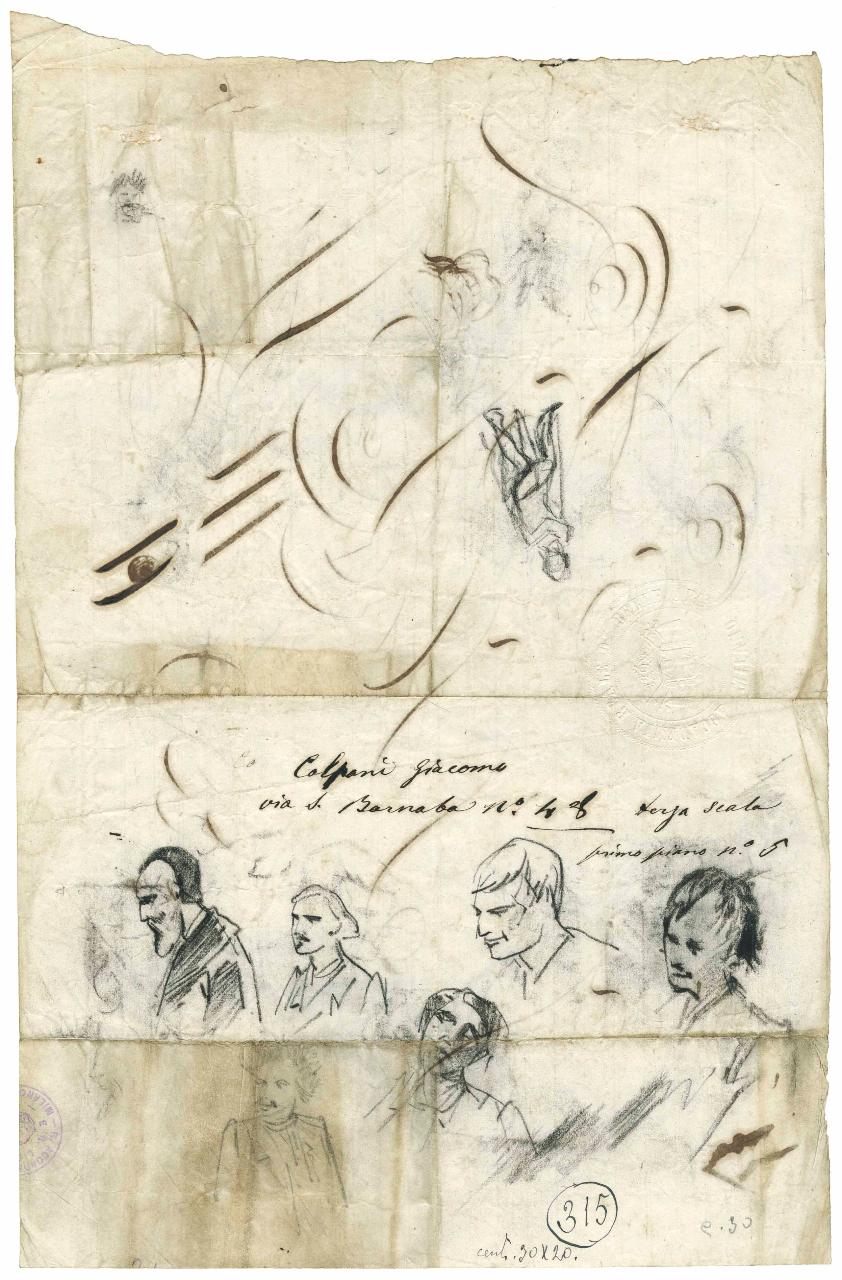 Calpani Giacomo
via S. Barnaba nº 48 terza scala
primo piano nº 5
315
cent. 30X20.
e. 30
MILANO